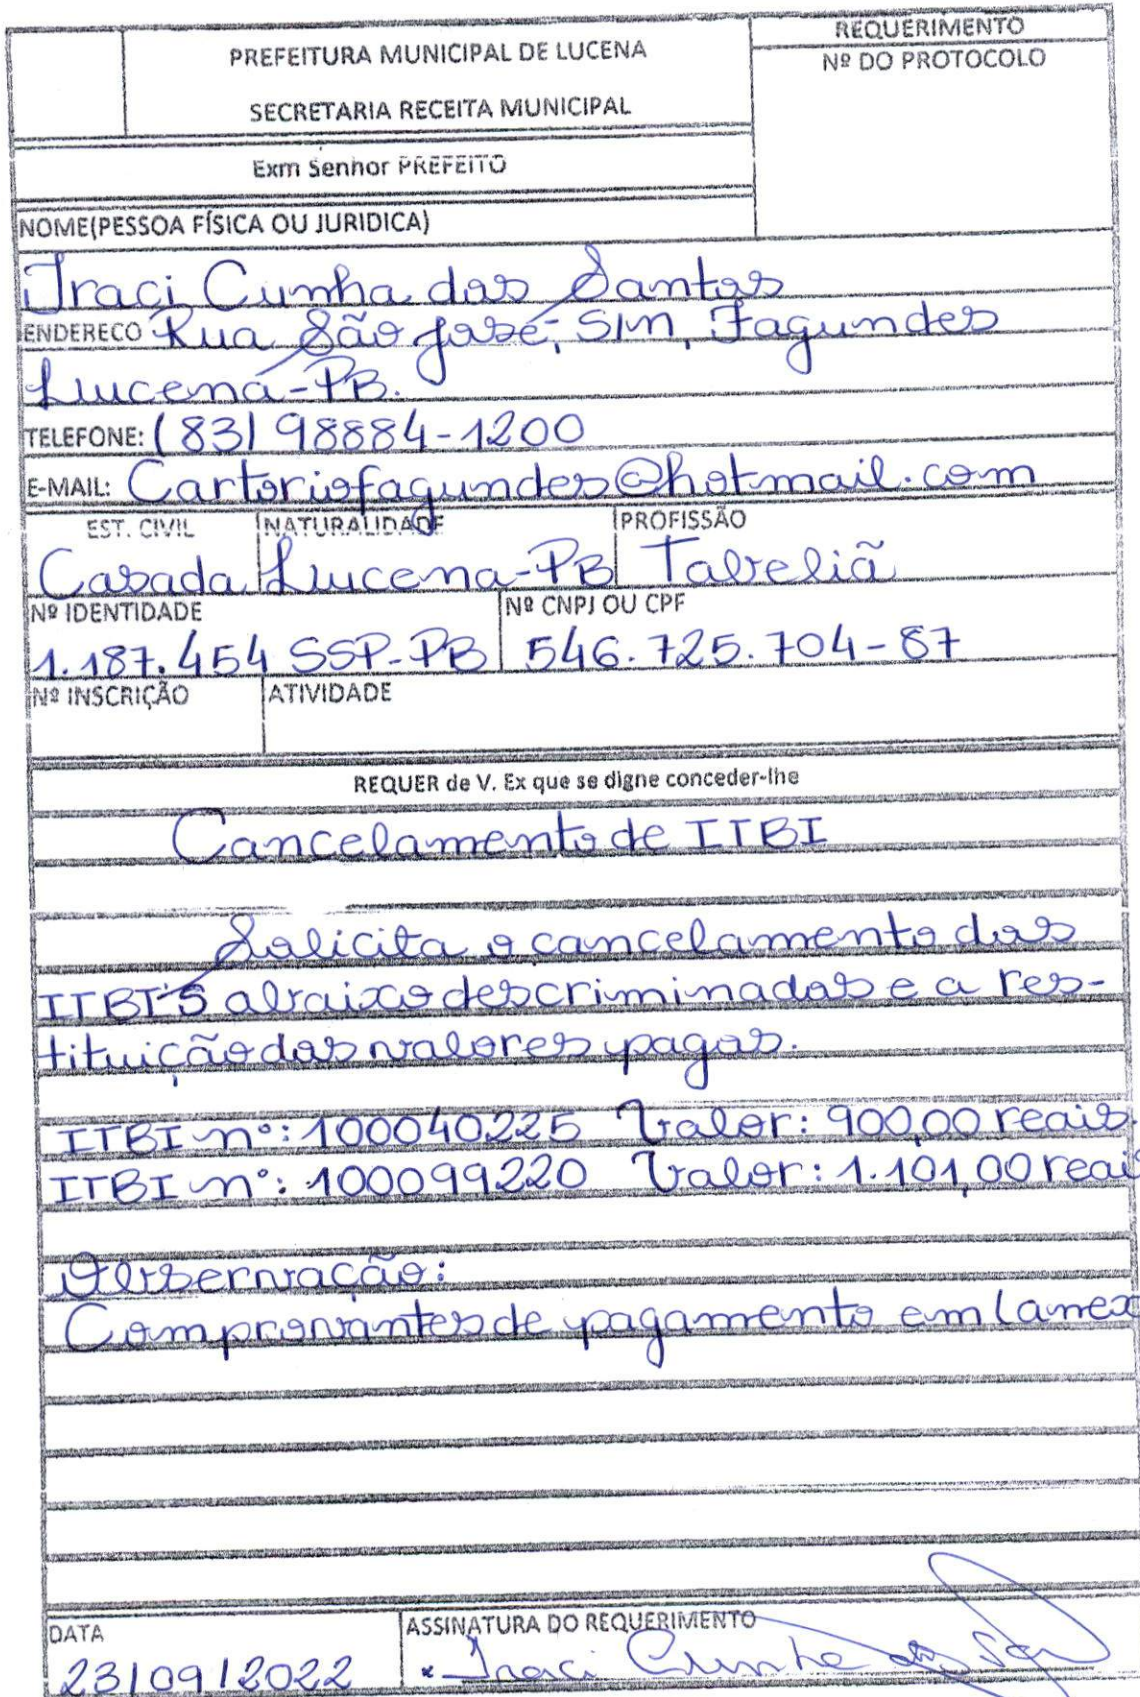 REQUERIMENTO
PREFEITURA MUNICIPAL DE LUCENA
Nº DO PROTOCOLO
SECRETARIA RECEITA MUNICIPAL
Exm Senhor PREFEITO
NOME(PESSOA FÍSICA OU JURIDICA)
Iraci Cunha dos Santos
ENDERECO Rua São José, S/n, Fagundes
Lucena-PB.
TELEFONE: (83) 98884-1200
E-MAIL: Cartoriofagundes@hotmail.com
EST. CIVIL NATURALIDADE PROFISSÃO
Casada Lucena-PB Tabeliã
Nº IDENTIDADE Nº CNPJ OU CPF
1.187.454 SSP-PB 546.725.704-87
Nº INSCRIÇÃO ATIVIDADE
REQUER de V. Ex que se digne conceder-lhe
Cancelamento de ITBI
Solicita o cancelamento dos
ITBI'S abaixo descriminados e a res-
tituição dos valores pagos.
ITBI nº: 100040225 Valor: 900,00 reais.
ITBI nº: 100099220 Valor: 1.101,00 reais
Observação:
Comprovantes de pagamento em (anex
DATA ASSINATURA DO REQUERIMENTO
23/09/2022 x Iraci Cunha dos San